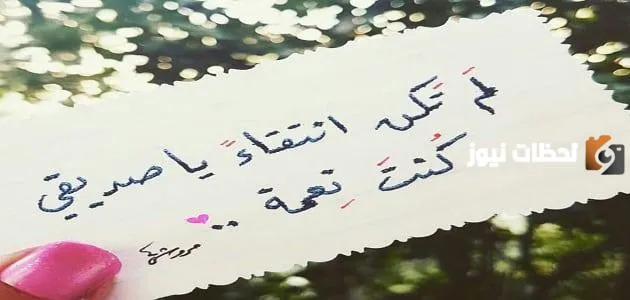 لَمْ تَكن انتقاءً يا صديقي
كُنتَ نِعمة ..
لحظات نيوز